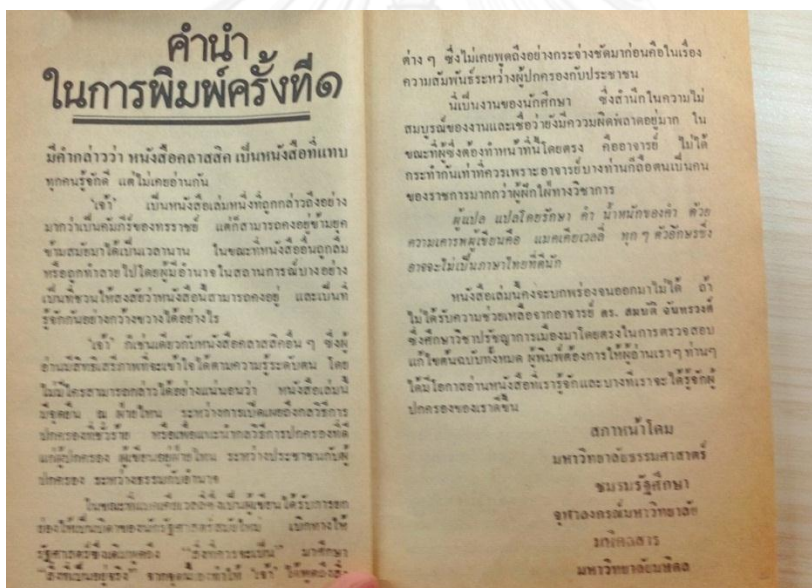 คำนำ
ในการพิมพ์ครั้งที่๑
มีคำกล่าวว่า หนังสือคลาสสิค เป็นหนังสือที่แทบ
ทุกคนรู้จักดี แต่ไม่เคยอ่านกัน
'เจ้า' เป็นหนังสือเล่มหนึ่งที่ถูกกล่าวถึงอย่าง
มากว่าเป็นคัมภีร์ของทรราชย์ แต่ก็สามารถคงอยู่ข้ามยุค
ข้ามสมัยมาได้เป็นเวลานาน ในขณะที่หนังสืออื่นถูกลืม
หรือถูกทำลายไปโดยผู้มีอำนาจในสถานการณ์บางอย่าง
เป็นที่ชวนให้สงสัยว่าหนังสือนี้สามารถคงอยู่ และเป็นที่
รู้จักกันอย่างกว้างขวางได้อย่างไร
'เจ้า' ก็เช่นเดียวกับหนังสือคลาสสิคอื่น ๆ ซึ่งผู้
อ่านมีสิทธิเสรีภาพที่จะเข้าใจได้ตามความรู้ระดับตน โดย
ไม่มีใครสามารถกล่าวได้อย่างแน่นอนว่า หนังสือเล่มนี้
มีจุดยืน ณ ฝ่ายไหน ระหว่างการเปิดเผยถึงกลวิธีการ
ปกครองที่ชั่วร้าย หรือเพื่อแนะนำกลวิธีการปกครองที่ดี
แก่ผู้ปกครอง ผู้เขียนอยู่ฝ่ายไหน ระหว่างประชาชนกับผู้
ปกครอง ระหว่างธรรมกับอำนาจ
ในขณะที่แมคเคียเวลลี่ซึ่งเป็นผู้เขียนได้รับการยก
ย่องให้เป็นบิดาของนักรัฐศาสตร์สมัยใหม่ เบิกทางให้
รัฐศาสตร์ซึ่งเดิมพูดถึง "สิ่งที่ควรจะเป็น" มาศึกษา
"สิ่งที่เป็นอยู่จริง" จากจุดนี้เองทำให้ 'เจ้า' ได้พูดถึงสิ่ง
ต่าง ๆ ซึ่งไม่เคยพูดถึงอย่างกระจ่างชัดมาก่อนคือในเรื่อง
ความสัมพันธ์ระหว่างผู้ปกครองกับประชาชน
นี่เป็นงานของนักศึกษา ซึ่งสำนึกในความไม่
สมบูรณ์ของงานและเชื่อว่ายังมีความผิดพลาดอยู่มาก ใน
ขณะที่ผู้ซึ่งต้องทำหน้าที่นี้โดยตรง คืออาจารย์ ไม่ได้
กระทำกันเท่าที่ควรเพราะอาจารย์บางท่านก็ถือตนเป็นคน
ของราชการมากกว่าผู้ฝักใฝ่ทางวิชาการ
ผู้แปล แปลโดยรักษา คำ น้ำหนักของคำ ด้วย
ความเคารพผู้เขียนคือ แมคเคียเวลลี่ ทุก ๆ ตัวอักษรซึ่ง
อาจจะไม่เป็นภาษาไทยที่ดีนัก
หนังสือเล่มนี้คงจะบกพร่องจนออกมาไม่ได้ ถ้า
ไม่ได้รับความช่วยเหลือจากอาจารย์ ดร. สมบัติ จันทรวงศ์
ซึ่งศึกษาวิชาปรัชญาการเมืองมาโดยตรงในการตรวจสอบ
แก้ไขต้นฉบับทั้งหมด ผู้พิมพ์ต้องการให้ผู้อ่านเรา ๆ ท่านๆ
ได้มีโอกาสอ่านหนังสือที่เรารู้จักและบางทีเราจะได้รู้จักผู้
ปกครองของเราดีขึ้น
สภาหน้าโดม
มหาวิทยาลัยธรรมศาสตร์
ชมรมรัฐศึกษา
จุฬาลงกรณ์มหาวิทยาลัย
มหิดลสาร
มหาวิทยาลัยมหิดล